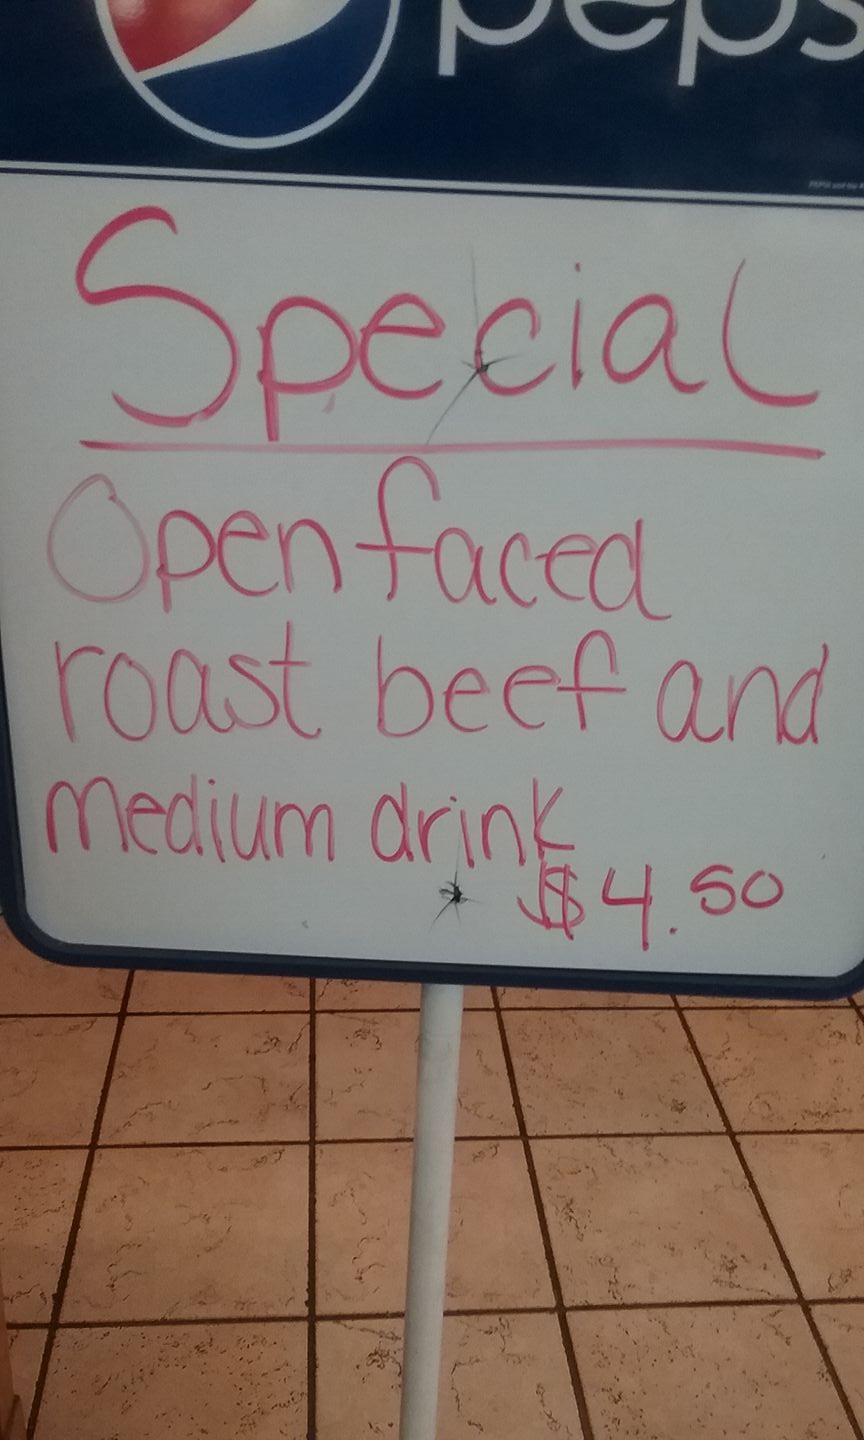 peps
Special
Open faced
roast beef and
medium drink
$4.50